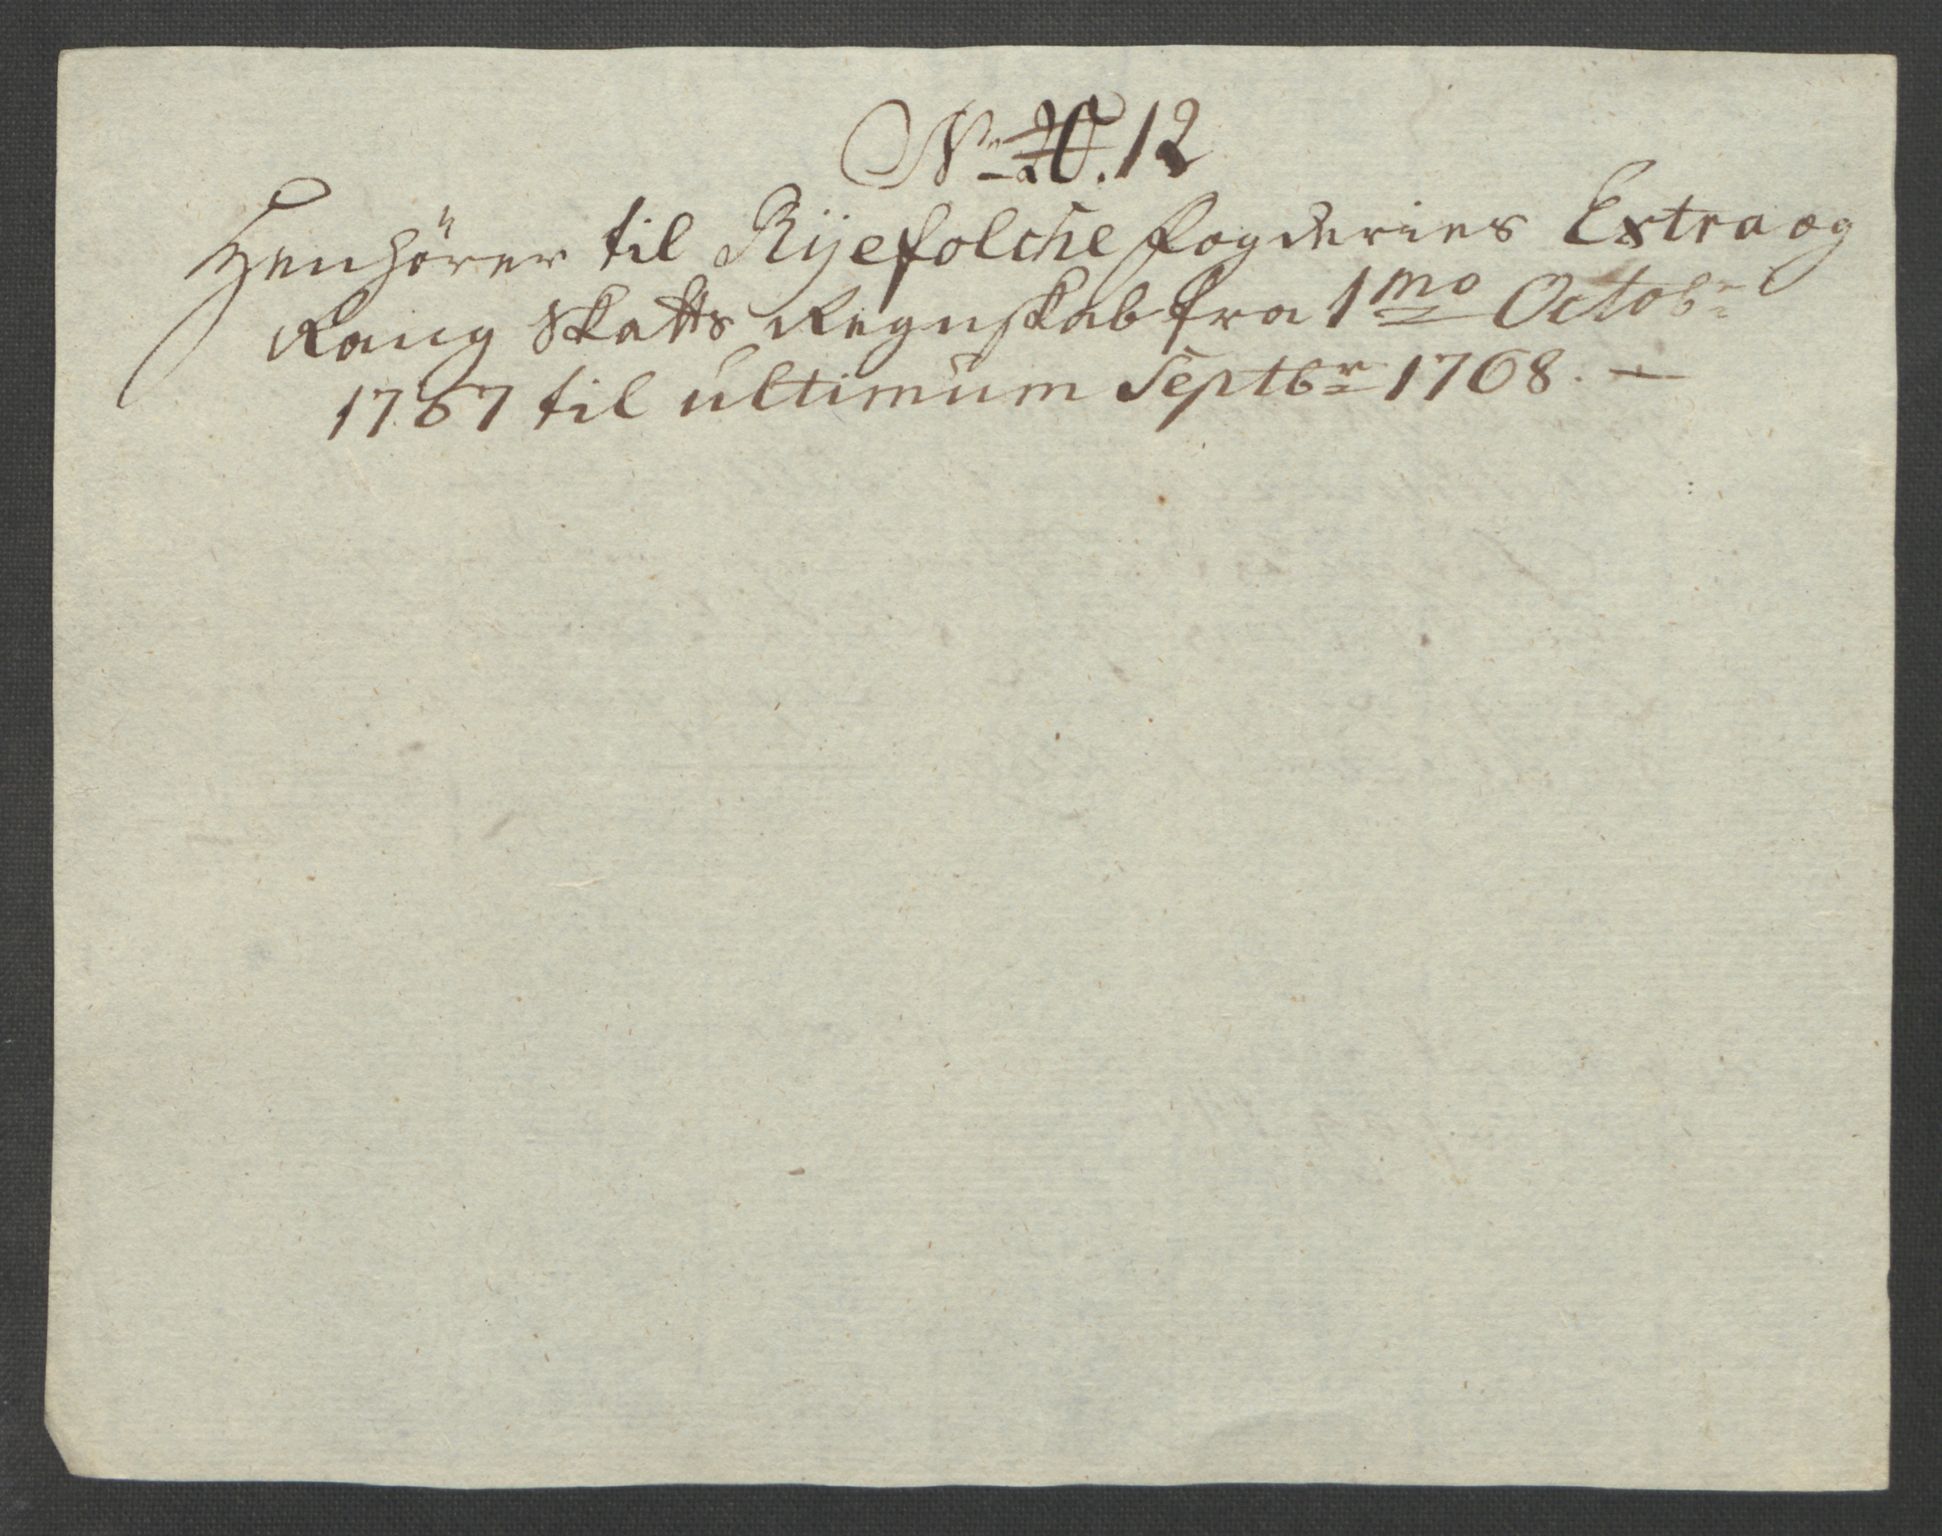 No 12
Henhörer til Rÿefolche fogderies Extra og
Rang Skatts Regnskab fra 1mo Octobr
1767 til ultimum Septbr 1768. —